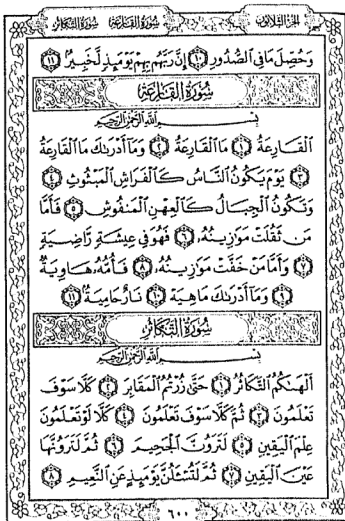 الجزء الثلاثون سورة القارعة سورة التكاثر
وَحُصِّلَ مَا فِي الصُّدُورِ ١٠ إِنَّ رَبَّهُم بِهِمْ يَوْمَئِذٍ لَّخَبِيرٌ ١١
سُورَةُ القَارِعَةِ
بِسْمِ اللَّهِ الرَّحْمَٰنِ الرَّحِيمِ
الْقَارِعَةُ ١ مَا الْقَارِعَةُ ٢ وَمَا أَدْرَىٰكَ مَا الْقَارِعَةُ
٣ يَوْمَ يَكُونُ النَّاسُ كَالْفَرَاشِ الْمَبْثُوثِ ٤
وَتَكُونُ الْجِبَالُ كَالْعِهْنِ الْمَنفُوشِ ٥ فَأَمَّا
مَن ثَقُلَتْ مَوَٰزِينُهُۥ ٦ فَهُوَ فِي عِيشَةٍ رَّاضِيَةٍ
٧ وَأَمَّا مَنْ خَفَّتْ مَوَٰزِينُهُۥ ٨ فَأُمُّهُۥ هَاوِيَةٌ
٩ وَمَا أَدْرَىٰكَ مَا هِيَهْ ١٠ نَارٌ حَامِيَةٌ ١١
سُورَةُ التَّكَاثُرِ
بِسْمِ اللَّهِ الرَّحْمَٰنِ الرَّحِيمِ
أَلْهَىٰكُمُ التَّكَاثُرُ ١ حَتَّىٰ زُرْتُمُ الْمَقَابِرَ ٢ كَلَّا سَوْفَ
تَعْلَمُونَ ٣ ثُمَّ كَلَّا سَوْفَ تَعْلَمُونَ ٤ كَلَّا لَوْ تَعْلَمُونَ
عِلْمَ الْيَقِينِ ٥ لَتَرَوُنَّ الْجَحِيمَ ٦ ثُمَّ لَتَرَوُنَّهَا
عَيْنَ الْيَقِينِ ٧ ثُمَّ لَتُسْـَٔلُنَّ يَوْمَئِذٍ عَنِ النَّعِيمِ ٨
٦٠٠